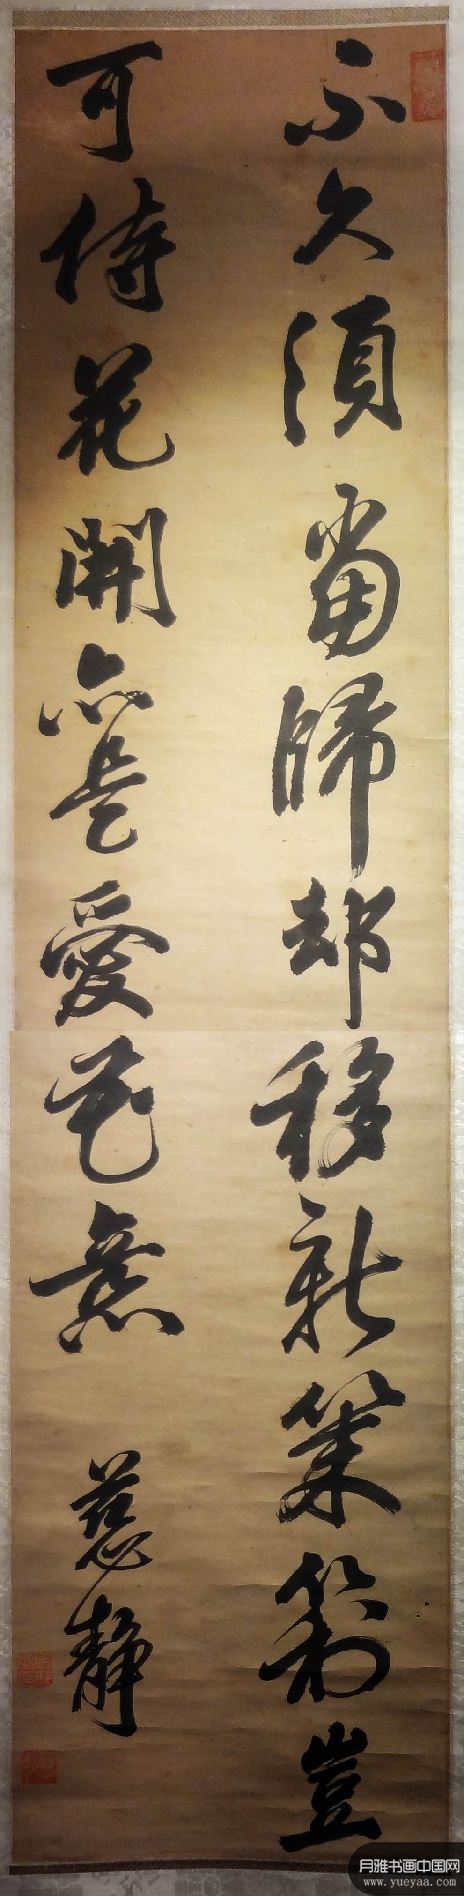 不久須當歸却移新菜箣豈
可待花開亦是愛花意
慈靜
月雅书画中国网
www.yueyaa.com